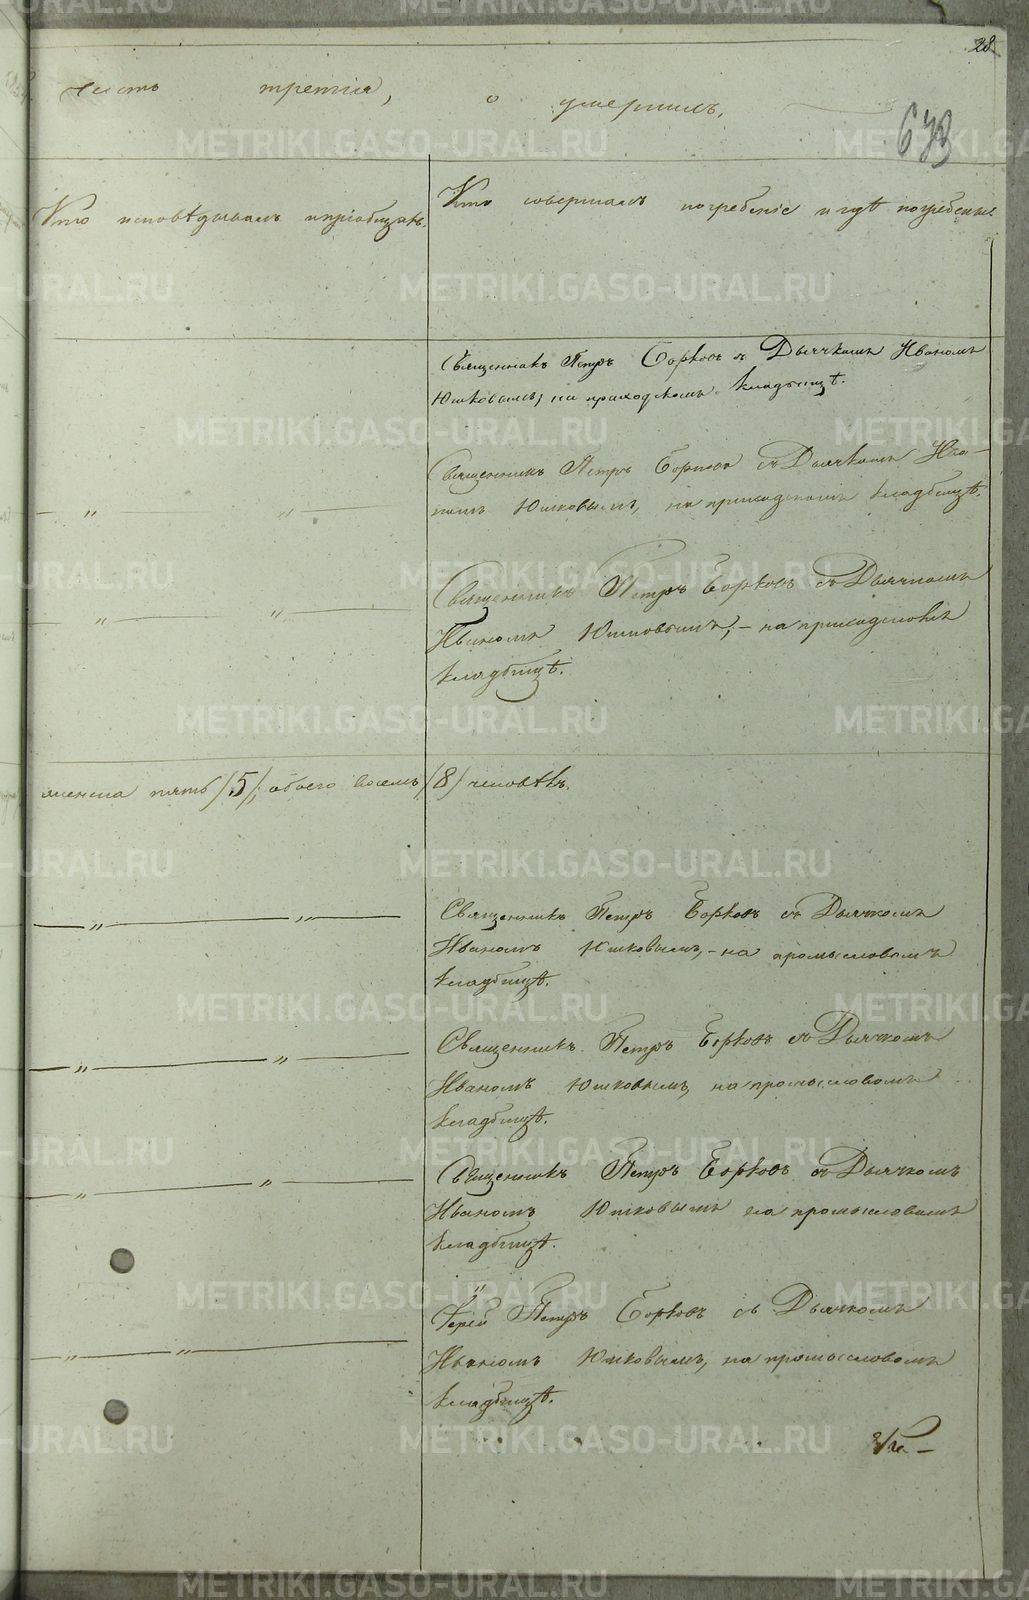 28
часть третія, о умершихъ.
673
Кто исповѣдывалъ и пріобщалъ.
Кто совершалъ погребеніе и гдѣ погребены.
Священникъ Петръ Борковъ съ Дьячкомъ Иваномъ
Юшковымъ, на приходскомъ кладбищѣ.
Священникъ Петръ Борковъ съ Дьячкомъ Ива-
номъ Юшковымъ, на приходскомъ кладбищѣ.
— " — " —
Священникъ Петръ Борковъ съ Дьячкомъ
— " — " —
Иваномъ Юшковымъ, – на приходскомъ
кладбищѣ.
женска пять (5), обоего восемь (8) человѣкъ.
Священникъ Петръ Борковъ съ Дьячкомъ
— " — " —
Иваномъ Юшковымъ, – на промысловомъ
кладбищѣ.
Священникъ Петръ Борковъ съ Дьячкомъ
— " — " —
Иваномъ Юшковымъ, на промысловомъ
кладбищѣ.
Священникъ Петръ Борковъ съ Дьячкомъ
— " — " —
Иваномъ Юшковымъ на промысловомъ
кладбищѣ.
Іерей Петръ Борковъ съ Дьячкомъ
— " — " —
Иваномъ Юшковымъ, на промысловомъ
кладбищѣ.
METRIKI.GASO-URAL.RU